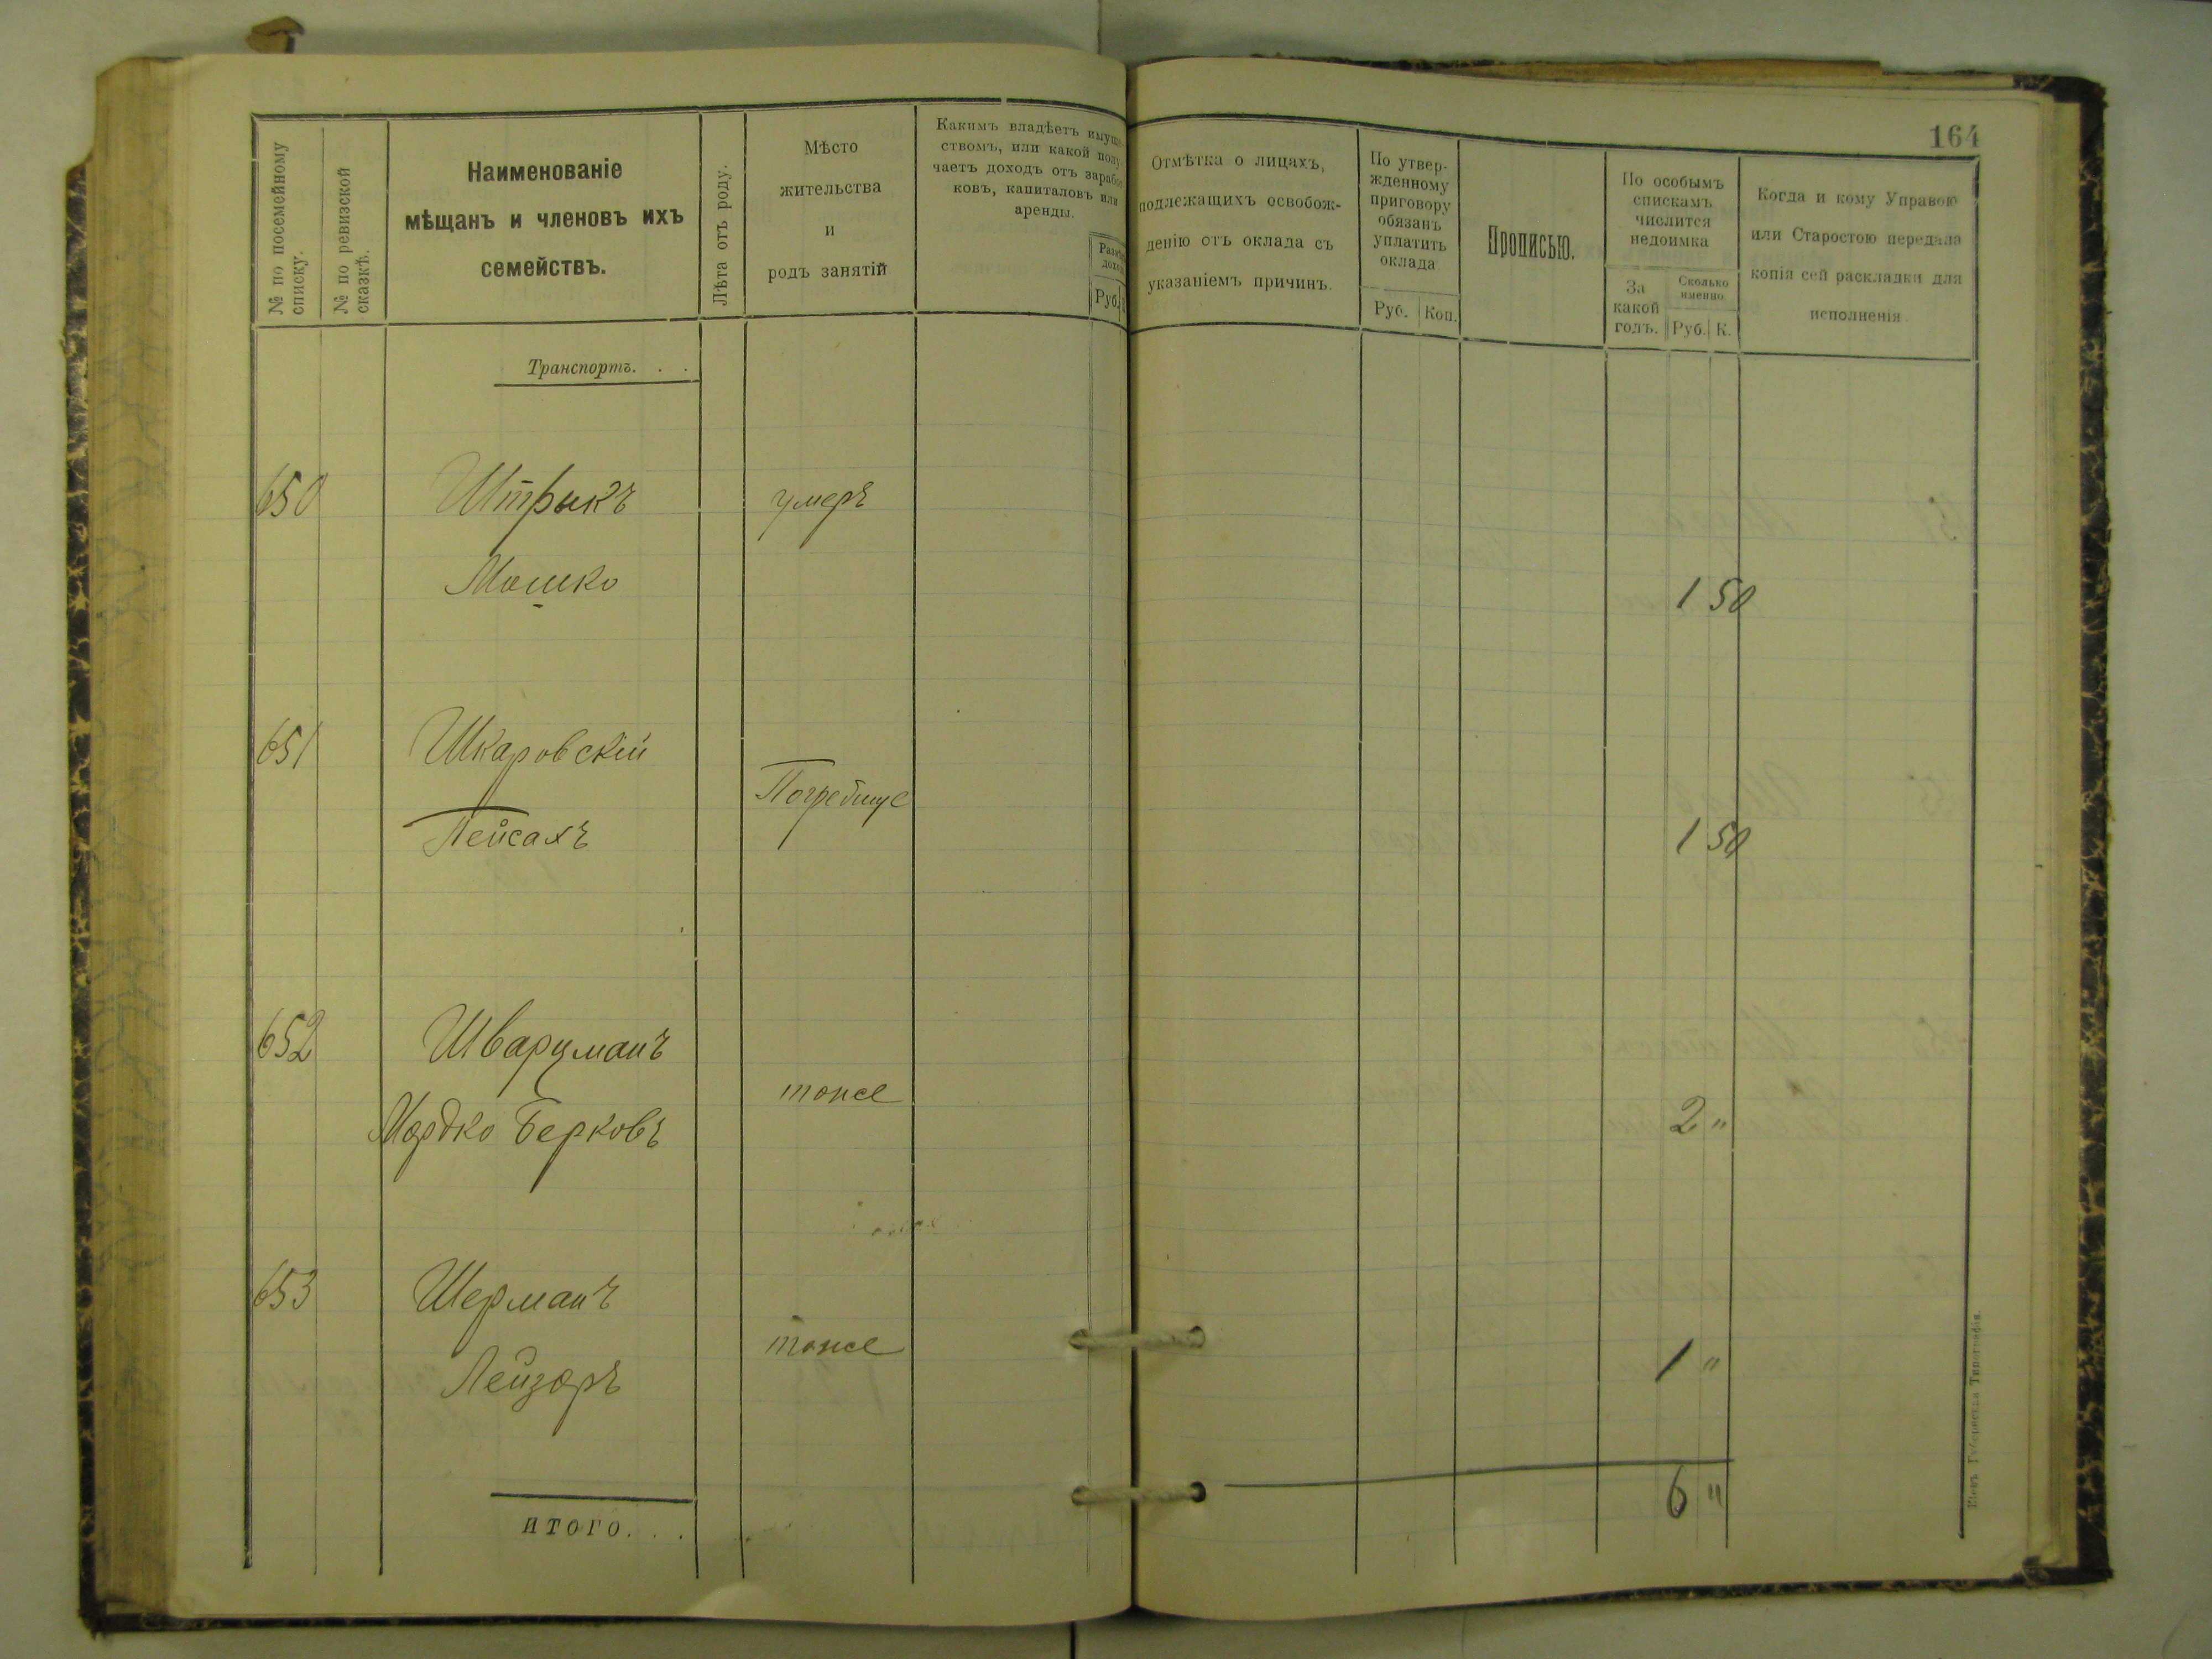 164
№ по посемейному
списку.
№ по ревизской
сказкѣ.
Наименованіе
мѣщанъ и членовъ ихъ
семействъ.
Лѣта отъ роду.
Мѣсто
жительства
и
родъ занятій
Какимъ владѣетъ имуще
ствомъ, или какой полу
чаетъ доходъ отъ зарабо
ковъ, капиталовъ или
аренды.
Руб.
Отмѣтка о лицахъ,
подлежащихъ освобож-
денію отъ оклада съ
указаніемъ причинъ.
По утвер-
жденному
приговору
обязанъ
уплатить
оклада
Руб. Коп.
Прописью.
По особымъ
спискамъ
числится
недоимка
За
какой
годъ.
Сколько
именно
Руб. К.
Когда и кому Управою
или Старостою передана
копія сей раскладки для
исполненія
Транспортъ. . .
650 Штрыкъ умеръ
Мошко 1 50
651 Шкаровскій
Погребище
Пейсахъ 1 50
652 Шварцманъ
тоже
Мордко Берковъ 2 "
653 Шерманъ
тоже
Лейзоръ 1 "
ИТОГО. . . 6 "
Кіевъ. Губернская Типографія.